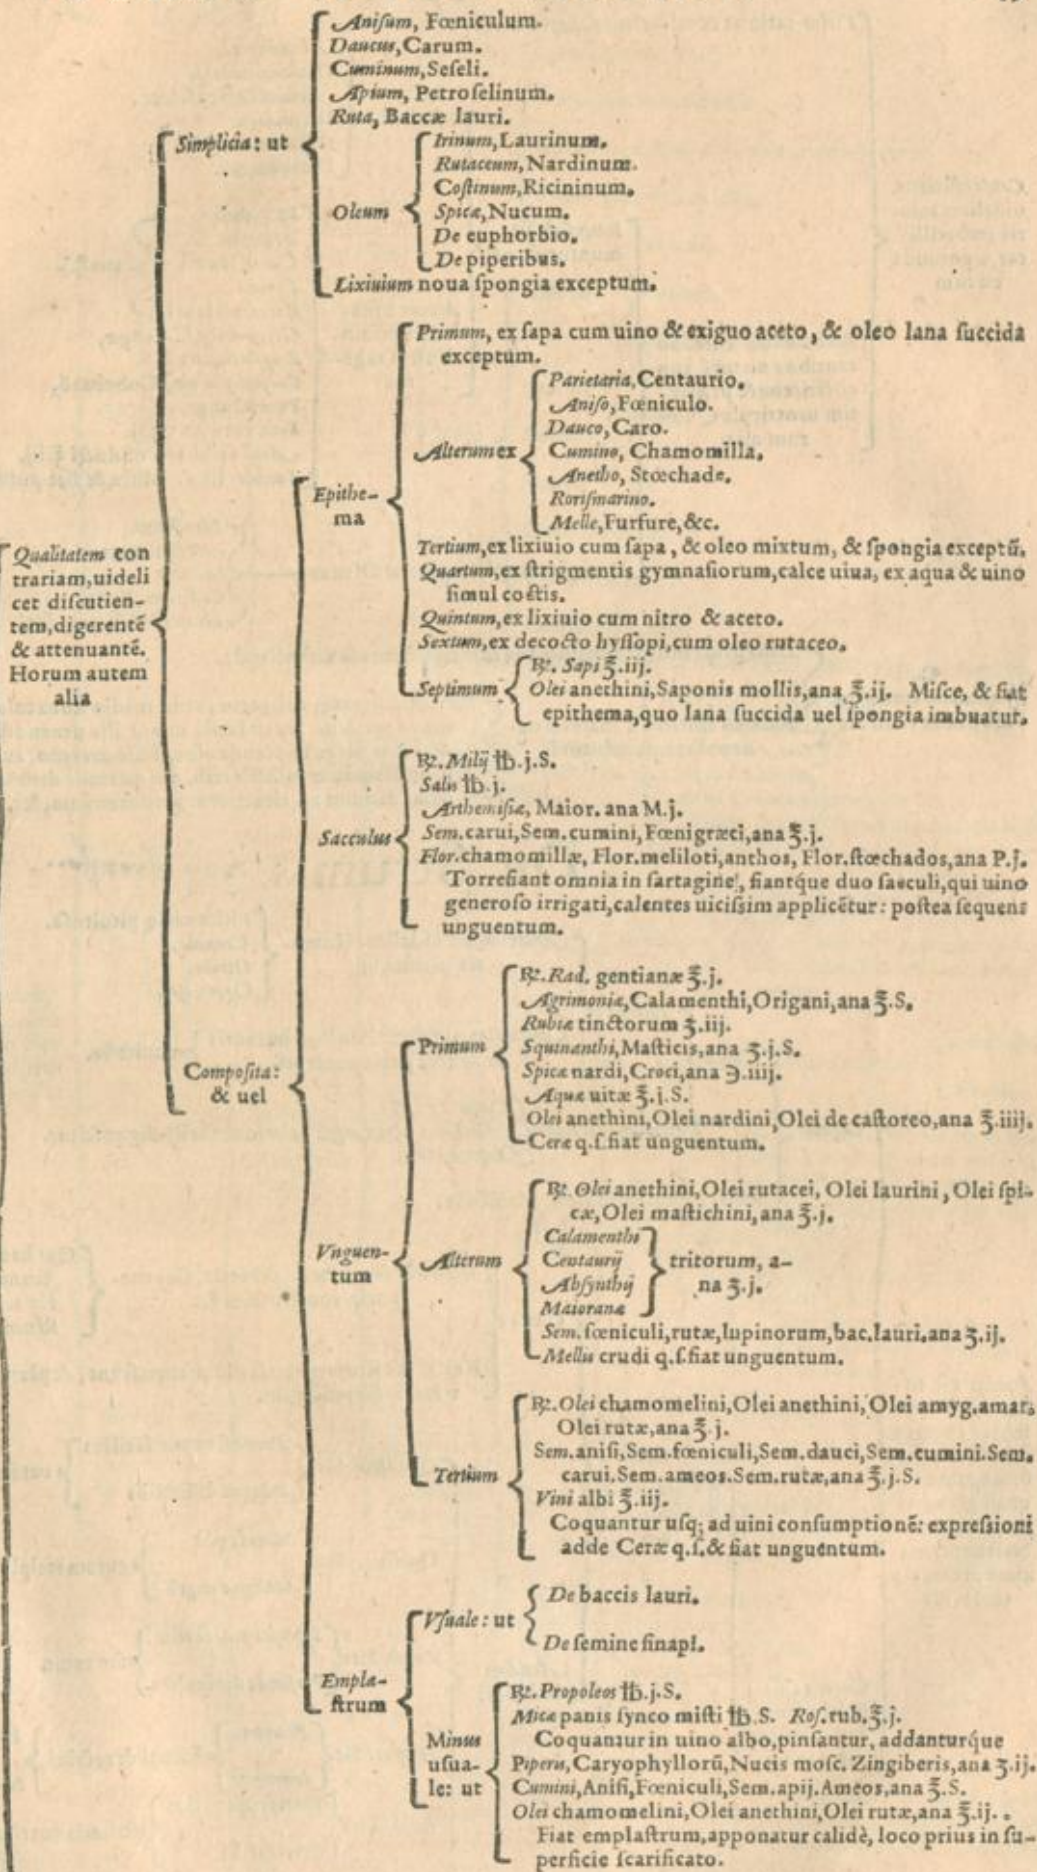 Anisum, Fœniculum.
Daucus, Carum.
Cuminum, Seseli.
Apium, Petroselinum.
Ruta, Baccæ lauri.
Simplicia: ut
Oleum
Irinum, Laurinum.
Rutaceum, Nardinum.
Costinum, Ricininum.
Spicæ, Nucum.
De euphorbio.
De piperibus.
Lixiuium noua spongia exceptum.
Qualitatem con
trariam, uideli
cet discutien-
tem, digerentẽ
& attenuantẽ.
Horum autem
alia
Composita:
& uel
Epithe-
ma
Primum, ex sapa cum uino & exiguo aceto, & oleo lana succida
exceptum.
Alterum ex
Parietaria, Centaurio.
Aniso, Fœniculo.
Dauco, Caro.
Cumino, Chamomilla.
Anetho, Stœchade.
Rorismarino.
Melle, Furfure, &c.
Tertium, ex lixiuio cum sapa, & oleo mixtum, & spongia exceptũ.
Quartum, ex strigmentis gymnasiorum, calce uiua, ex aqua & uino
simul coctis.
Quintum, ex lixiuio cum nitro & aceto.
Sextum, ex decocto hyssopi, cum oleo rutaceo.
Septimum
℞. Sapi ℥.iij.
Olei anethini, Saponis mollis, ana ℥.ij. Misce, & fiat
epithema, quo lana succida uel spongia imbuatur.
Sacculus
℞. Milij ℔.j.S.
Salis ℔.j.
Arthemisiæ, Maior. ana M.j.
Sem. carui, Sem. cumini, Fœnigræci, ana ℥.j.
Flor. chamomillæ, Flor. meliloti, anthos, Flor. stœchados, ana P.j.
Torrefiant omnia in sartagine, fiantque duo sacculi, qui uino
generoso irrigati, calentes uicissim applicẽtur: postea sequens
unguentum.
Vnguen-
tum
Primum
℞. Rad. gentianæ ℥.j.
Agrimoniæ, Calamenthi, Origani, ana ℥.S.
Rubiæ tinctorum ʒ.iij.
Squinanthi, Masticis, ana ʒ.j.S.
Spicæ nardi, Croci, ana ℈.iiij.
Aquæ uitæ ℥.j.S.
Olei anethini, Olei nardini, Olei de castoreo, ana ℥.iiij.
Ceræ q.s. fiat unguentum.
Alterum
℞. Olei anethini, Olei rutacei, Olei laurini, Olei spi-
cæ, Olei mastichini, ana ℥.j.
Calamenthi
Centaurij
Absynthij
Maioranæ
tritorum, a-
na ʒ.j.
Sem. fœniculi, rutæ, lupinorum, bac. lauri, ana ʒ.ij.
Mellis crudi q.s. fiat unguentum.
Tertium
℞. Olei chamomelini, Olei anethini, Olei amyg. amar.
Olei rutæ, ana ℥.j.
Sem. anisi, Sem. fœniculi, Sem. dauci, Sem. cumini. Sem.
carui. Sem. ameos. Sem. rutæ, ana ℥.j.S.
Vini albi ℥.iij.
Coquantur usq; ad uini consumptionẽ: expressioni
adde Ceræ q.s. & fiat unguentum.
Empla-
strum
Vsuale: ut
De baccis lauri.
De semine sinapi.
Minus
usua-
le: ut
℞. Propoleos ℔.j.S.
Micæ panis synco misti ℔.S. Ros. rub. ℥.j.
Coquantur in uino albo, pinsantur, addanturque
Piperis, Caryophyllorũ, Nucis mosc. Zingiberis, ana ʒ.ij.
Cumini, Anisi, Fœniculi, Sem. apij. Ameos, ana ℥.S.
Olei chamomelini, Olei anethini, Olei rutæ, ana ℥.ij.
Fiat emplastrum, apponatur calidè, loco prius in su-
perficie scarificato.